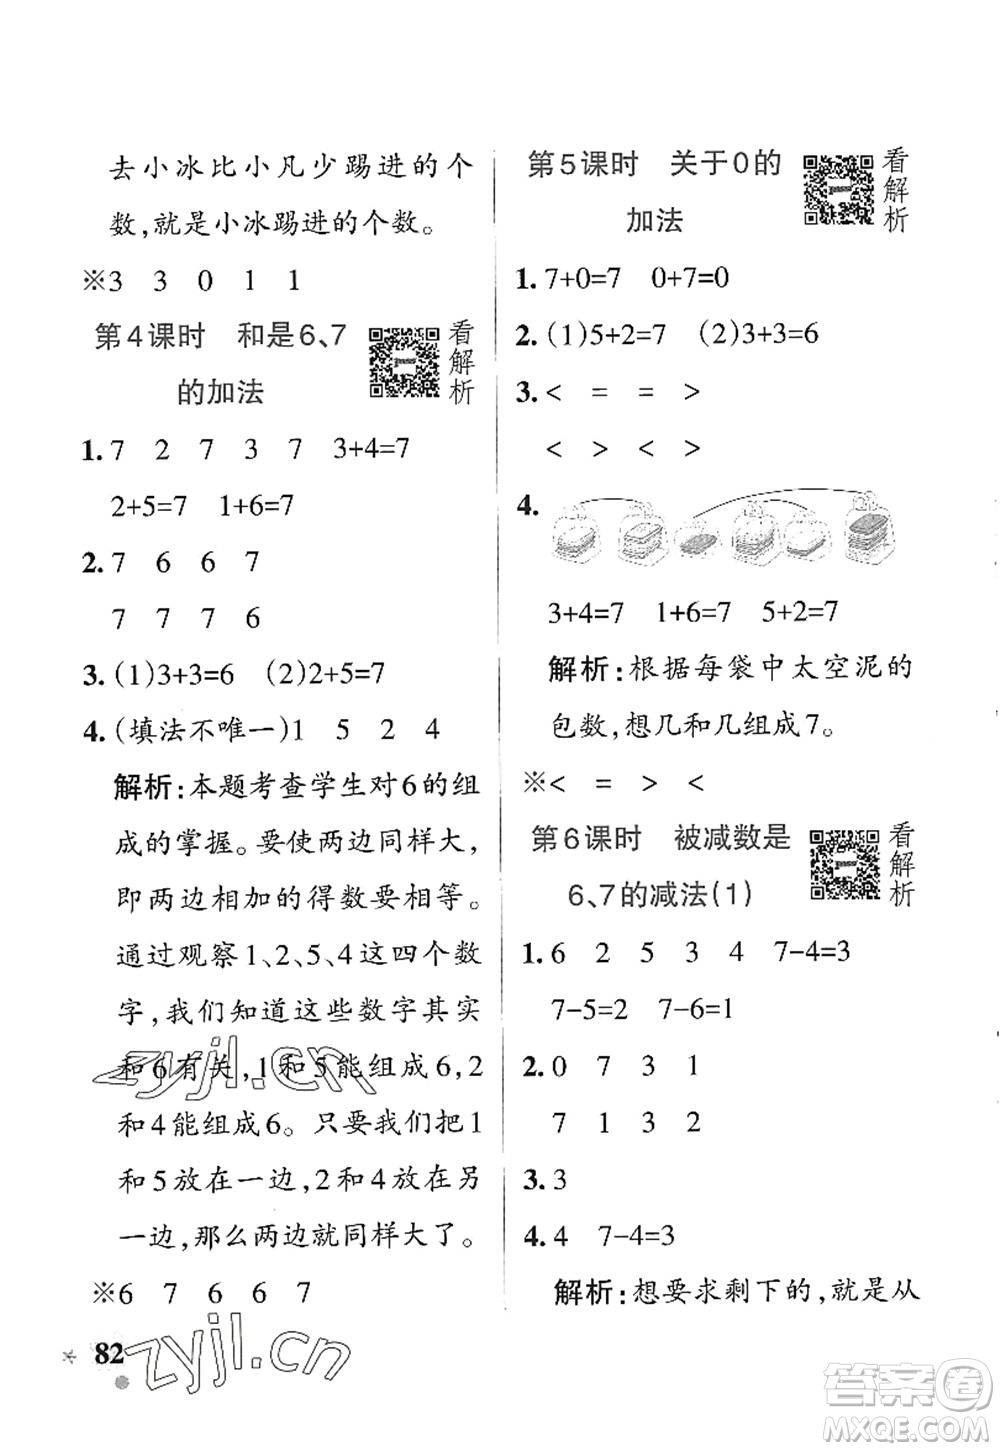 去小冰比小凡少踢进的个
数,就是小冰踢进的个数。
※3 3 0 1 1
第4课时 和是6、7
的加法
看解析
1. 7 2 7 3 7 3+4=7
2+5=7 1+6=7
2. 7 6 6 7
7 7 7 6
3. (1)3+3=6 (2)5+2=7
4. (填法不唯一)1 5 2 4
解析:本题考查学生对6的组
成的掌握。要使两边同样大,
即两边相加的得数要相等。
通过观察1、2、5、4这四个数
字,我们知道这些数字其实
和6有关,1和5能组成6,2
和4能组成6。只要我们把1
和5放在一边,2和4放在另
一边,那么两边就同样大了。
※6 7 6 6 7
82
第5课时 关于0的
加法
看解析
1. 7+0=7 0+7=0
2. (1)5+2=7 (2)3+3=6
3. < = = >
< > < >
4.
3+4=7 1+6=7 5+2=7
解析:根据每袋中太空泥的
包数,想几和几组成7。
※< = > <
第6课时 被减数是
6、7的减法(1)
看解析
1. 6 2 5 3 4 7-4=3
7-5=2 7-6=1
2. 0 7 3 1
7 1 3 2
3. 3
4. 4 7-4=3
解析:想要求剩下的,就是从
zyjl.cn
zyjl.cn
答案圈
MXQE.COM